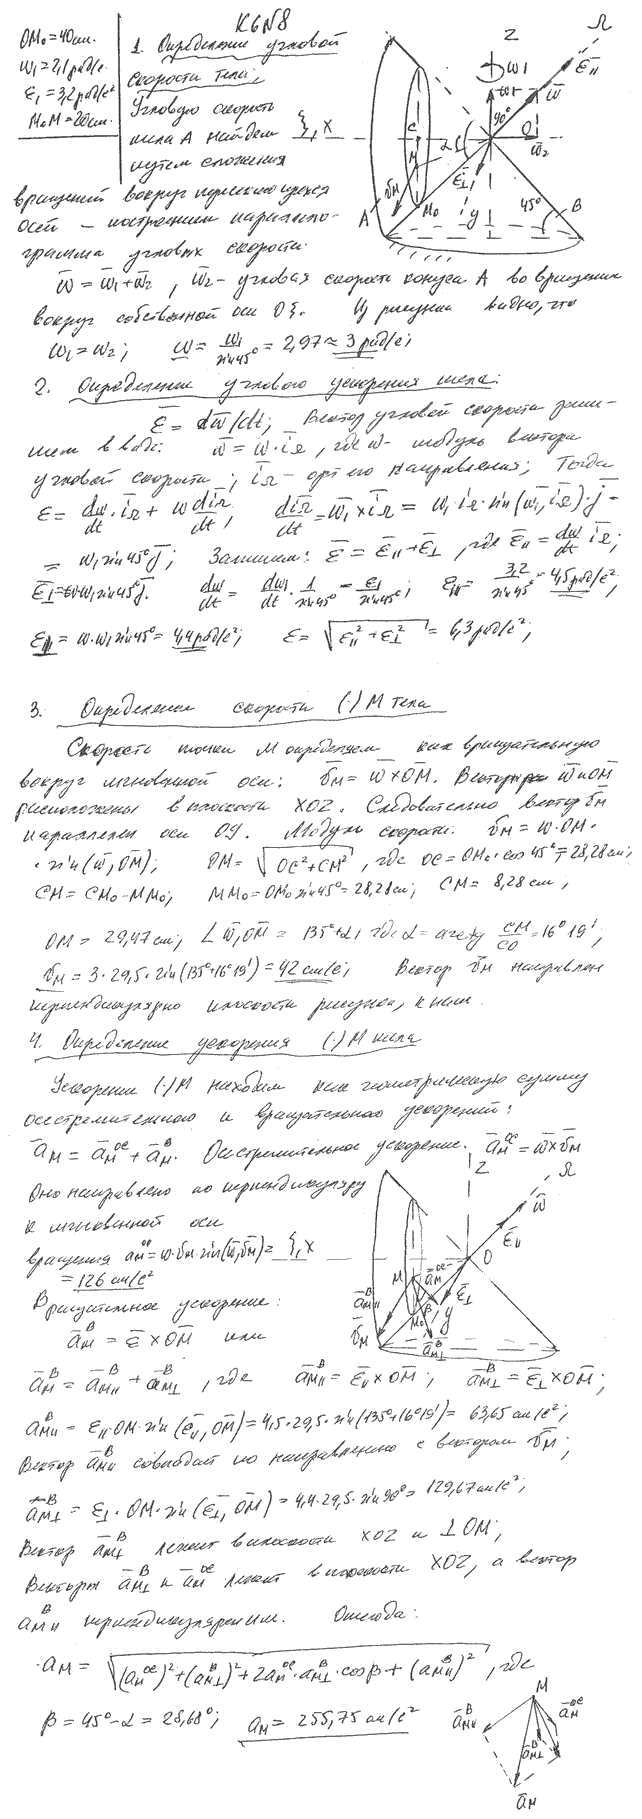 К6N8
OM₀=40см.
ω₁=2,1рад/с
ε₁=3,2рад/с²
M₀M=20см.
1. Определение угловой
скорости тела;
Угловую скорость
тела А найдем
путем сложения
вращений вокруг пересекающихся
осей – построением паралело-
грамма угловых скорости.
ω̄=ω̄₁+ω̄₂, ω̄₂ – угловая скорость конуса А во вращении
вокруг собственной оси Oξ. Из рисунка видно, что
ω₁=ω₂; ω=ω₁/sin45°=2,97≈3рад/с;
Z
Ω
ω₁
ε̄₁₁
ω̄
90°
O
ω̄₂
ξ, x
C
M
α
v̄м
ε̄⊥
A
M₀
y
45°
B
2. Определение углового ускорения тела:
ε̄=dω̄/dt; Вектор угловой скорости запи-
шем в виде: ω̄=ω·īΩ, где ω – модуль вектора
угловой скорости; īΩ – орт его направления; Тогда
ε=dω/dt·īΩ+ω dīΩ/dt; dīΩ/dt=ω̄₁×īΩ=ω₁·iΩ·sin(ω̄₁,īΩ)·j̄=
=ω₁sin45°j̄; Запишем: ε̄=ε̄₁₁+ε̄⊥, где ε̄₁₁=dω/dt īΩ;
ε̄⊥=ω·ω₁sin45°j̄. dω/dt=dω₁/dt·1/sin45°=ε₁/sin45°; ε₁₁=3,2/sin45°=4,5рад/с²;
=ω·ω₁sin45°=4,4рад/с²; ε=√(ε₁₁²+ε⊥²)=6,3рад/с²;
3. Определение скорости (·) М тела
Скорость точки М определяем как вращательную
вокруг мгновенной оси: v̄м=ω̄×OM̄. Вектора ω̄ и OM̄
расположены в плоскости XOZ. Следовательно вектор v̄м
параллелен оси Oy. Модуль скорости: vм=ω·OM·
·sin(ω̄,OM̄); OM=√(OC²+CM²), где OC=OM₀·cos45°=28,28см;
CM=CM₀-MM₀; MM₀=OM₀sin45°=28,28см; CM=8,28см;
OM=29,47см; ∠ω̄,OM̄=135°+α; где α=arctg CM/CO=16°19′;
vм=3·29,5·sin(135°+16°19′)=42см/с; Вектор v̄м направлен
перпендикулярно плоскости рисунка, к нам.
4. Определение ускорения (·) М тела
Ускорение (·)М находим как геометрическую сумму
осестремительного и вращательного ускорений:
āм=āмᵒᶜ+āмᴮ. Осестремительное ускорение. āмᵒᶜ=ω̄×v̄м
Оно направлено по перпендикуляру
к мгновенной оси
вращения aмᵒᶜ=ω·vм·sin(ω̄,v̄м)=
=126см/с²
Вращательное ускорение:
āмᴮ=ε̄×OM̄ или
Z
Ω
ω̄
ε̄₁₁
O
ξ, x
M
āмᵒᶜ
ε̄⊥
āм₁₁ᴮ
β
M₀
y
v̄м
āм⊥ᴮ
āмᴮ=āм₁₁ᴮ+āм⊥ᴮ, где āм₁₁ᴮ=ε̄₁₁×OM̄; āм⊥ᴮ=ε̄⊥×OM̄;
aм₁₁ᴮ=ε₁₁·OM·sin(ε̄₁₁,OM̄)=4,5·29,5·sin(135°+16°19′)=63,65см/с²;
Вектор āм₁₁ᴮ совпадает по направлению с вектором v̄м;
āм⊥ᴮ=ε⊥·OM·sin(ε̄⊥,OM̄)=4,4·29,5·sin90°=129,67см/с²;
Вектор āм⊥ᴮ лежит в плоскости XOZ и ⊥OM;
Векторы āм⊥ᴮ и āмᵒᶜ лежат в плоскости XOZ, а вектор
āм₁₁ᴮ перпендикулярен им. Отсюда:
aм=√((aмᵒᶜ)²+(aм⊥ᴮ)²+2aмᵒᶜ·aм⊥ᴮ·cosβ+(aм₁₁ᴮ)²), где
β=45°-α=28,68°; aм=255,75см/с²
M
āм₁₁ᴮ
āмᵒᶜ
āм⊥ᴮ
āм